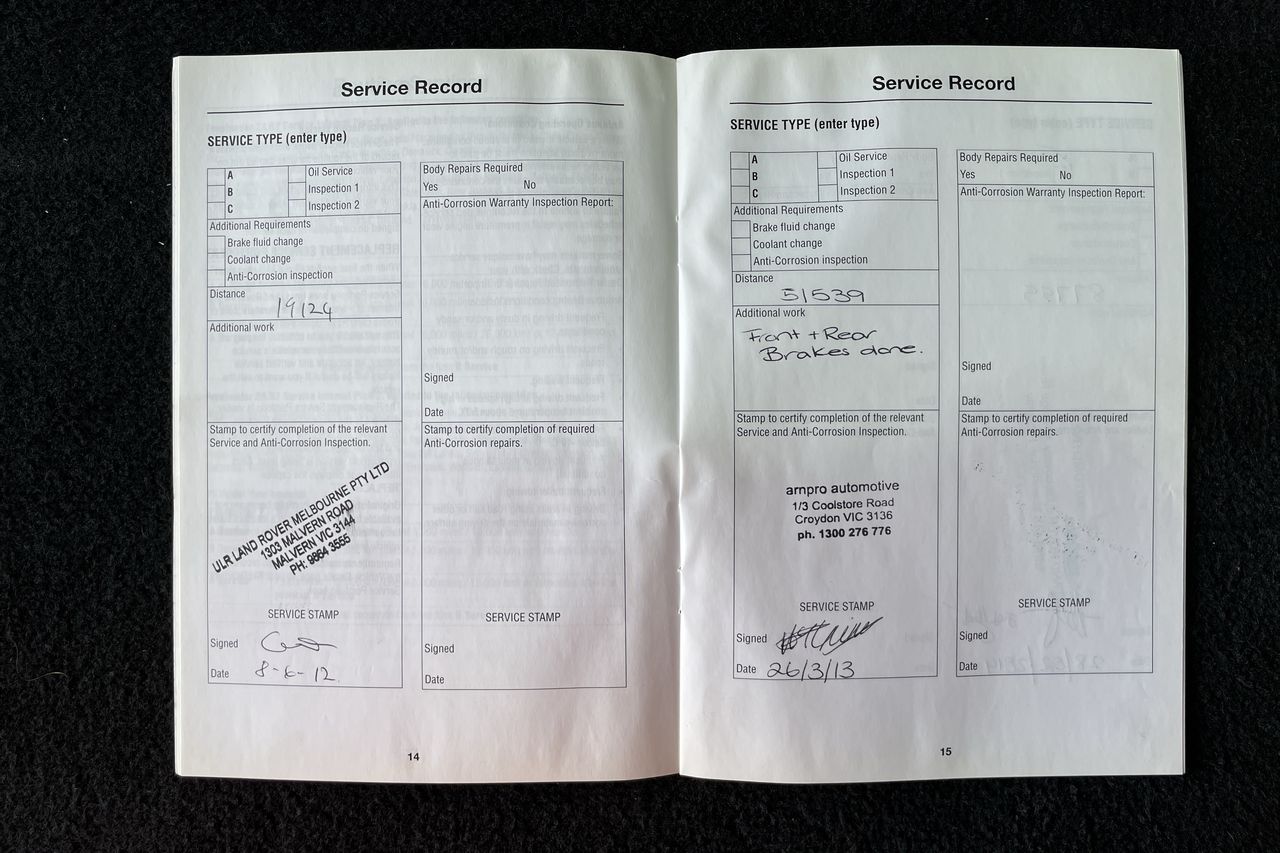 Service Record
SERVICE TYPE (enter type)
A
B
C
Oil Service
Inspection 1
Inspection 2
Additional Requirements
Brake fluid change
Coolant change
Anti-Corrosion inspection
Distance
19124
Additional work
Stamp to certify completion of the relevant
Service and Anti-Corrosion Inspection.
ULR LAND ROVER MELBOURNE PTY LTD
1303 MALVERN ROAD
MALVERN VIC 3144
PH: 9864 3555
SERVICE STAMP
Signed
Date 8-6-12
Body Repairs Required
Yes No
Anti-Corrosion Warranty Inspection Report:
Signed
Date
Stamp to certify completion of required
Anti-Corrosion repairs.
SERVICE STAMP
Signed
Date
14
Service Record
SERVICE TYPE (enter type)
A
B
C
Oil Service
Inspection 1
Inspection 2
Additional Requirements
Brake fluid change
Coolant change
Anti-Corrosion inspection
Distance
51539
Additional work
Front + Rear
Brakes done.
Stamp to certify completion of the relevant
Service and Anti-Corrosion Inspection.
arnpro automotive
1/3 Coolstore Road
Croydon VIC 3136
ph. 1300 276 776
SERVICE STAMP
Signed
Date 26/3/13
Body Repairs Required
Yes No
Anti-Corrosion Warranty Inspection Report:
Signed
Date
Stamp to certify completion of required
Anti-Corrosion repairs.
SERVICE STAMP
Signed
Date
15